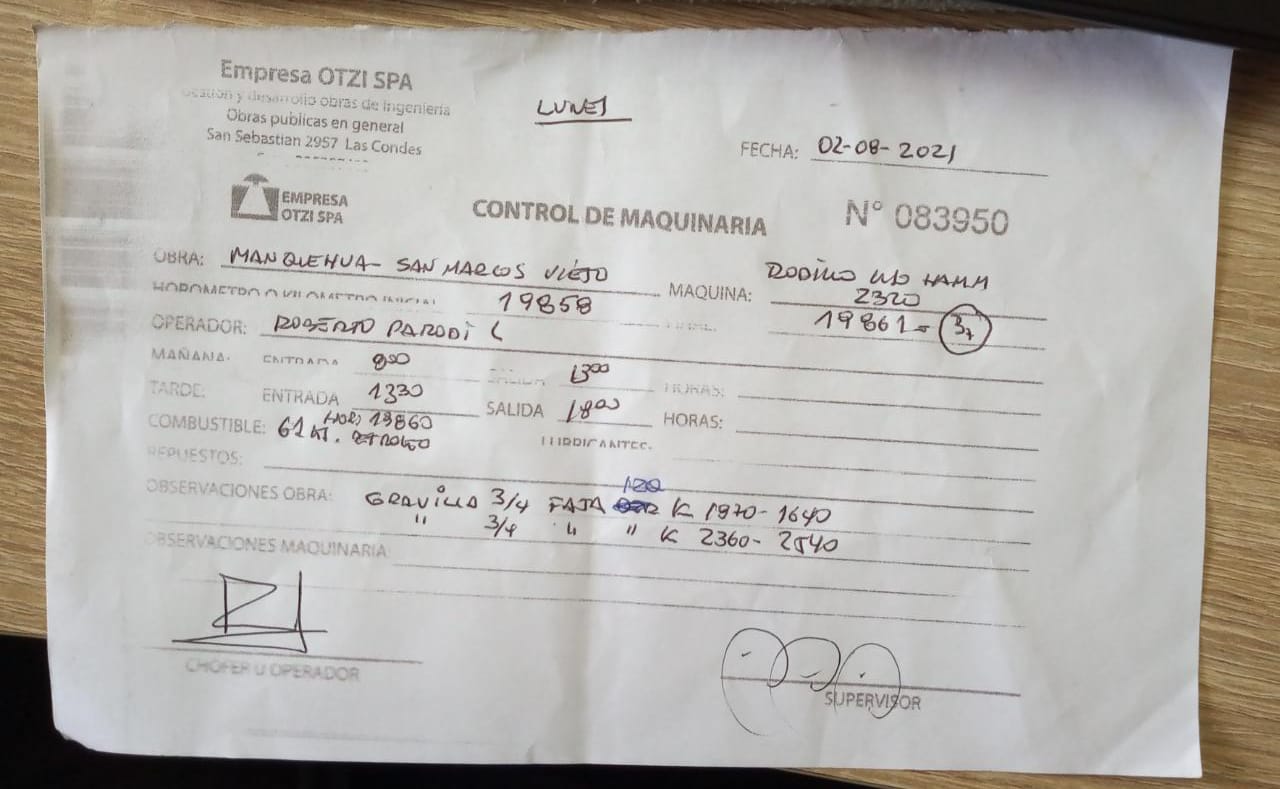 Empresa OTZI SPA
Gestión y desarrollo obras de Ingeniería
Obras publicas en general
San Sebastian 2957 Las Condes
LUNES
FECHA: 02-08-2021
EMPRESA
OTZI SPA
CONTROL DE MAQUINARIA
N° 083950
OBRA: MANQUEHUA - SAN MARCOS VIEJO
MAQUINA: RODILLO HAMM
2320
HOROMETRO O KILOMETRO INICIAL 19858
19861 - 3,
OPERADOR: ROBERTO PARODI C
MAÑANA: ENTRADA 800 SALIDA 1300 HORAS:
TARDE: ENTRADA 1330 SALIDA 1800 HORAS:
COMBUSTIBLE: 61 LT. PETROLEO HOR) 19860 LUBRICANTES:
REPUESTOS:
OBSERVACIONES OBRA: GRAVILLA 3/4 FAJA 120 K 1970 - 1640
" 3/4 " " K 2360 - 2540
OBSERVACIONES MAQUINARIA:
CHOFER U OPERADOR
SUPERVISOR